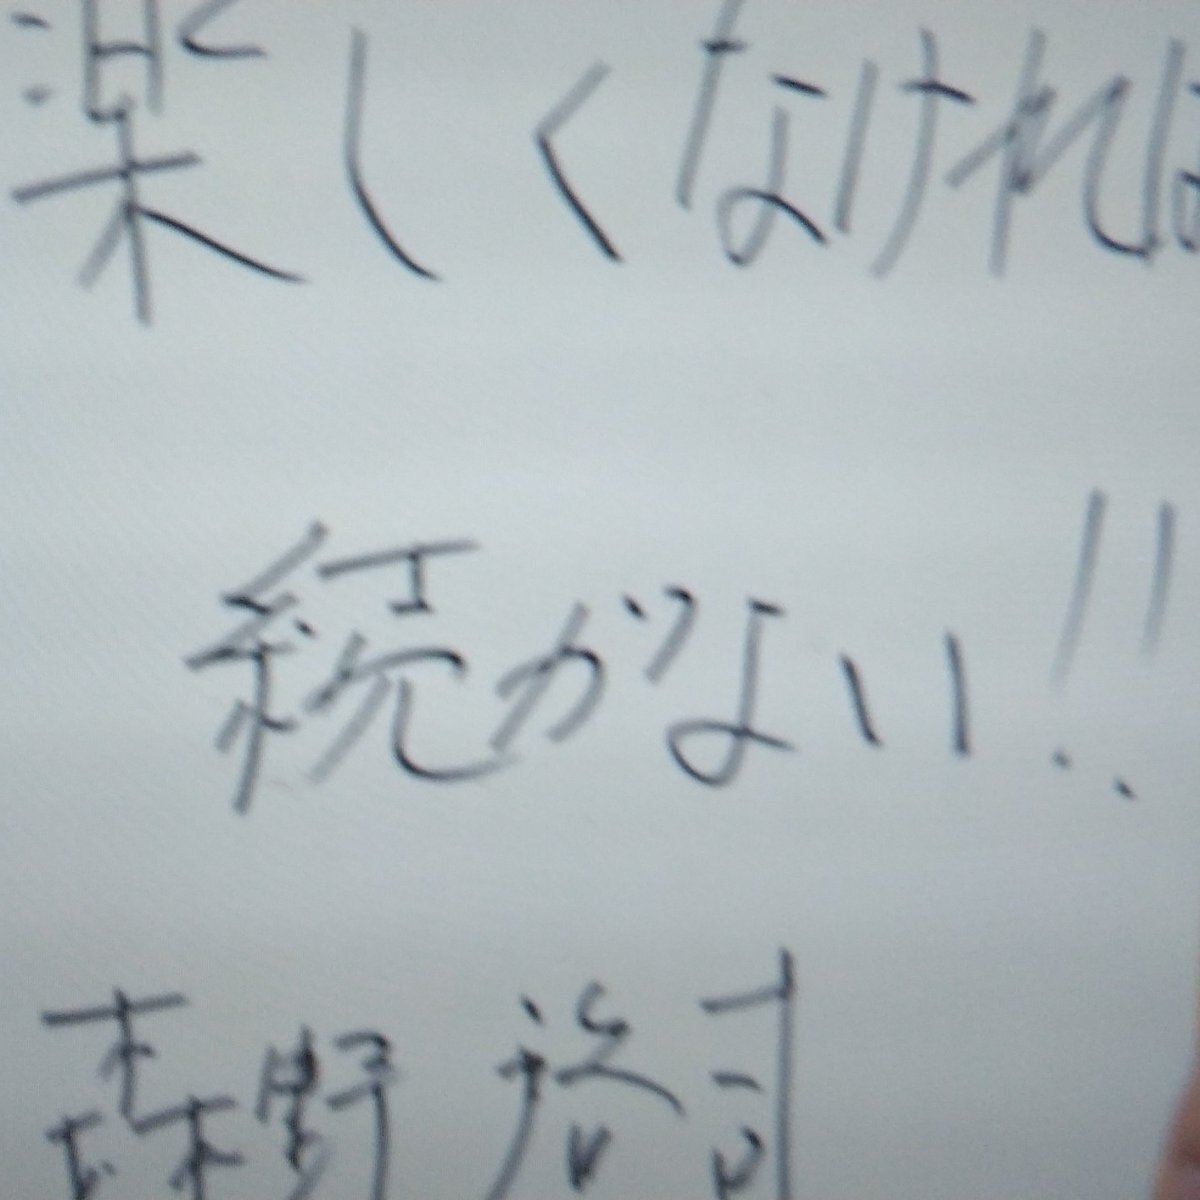 楽しくなければ
続かない!!
森野 裕司